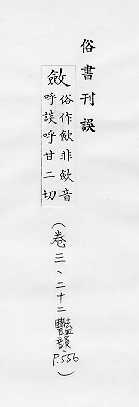 俗書刊誤
斂
俗作歛非歛音
呼談呼甘二切
（卷三、二十二豔韻、P.556）